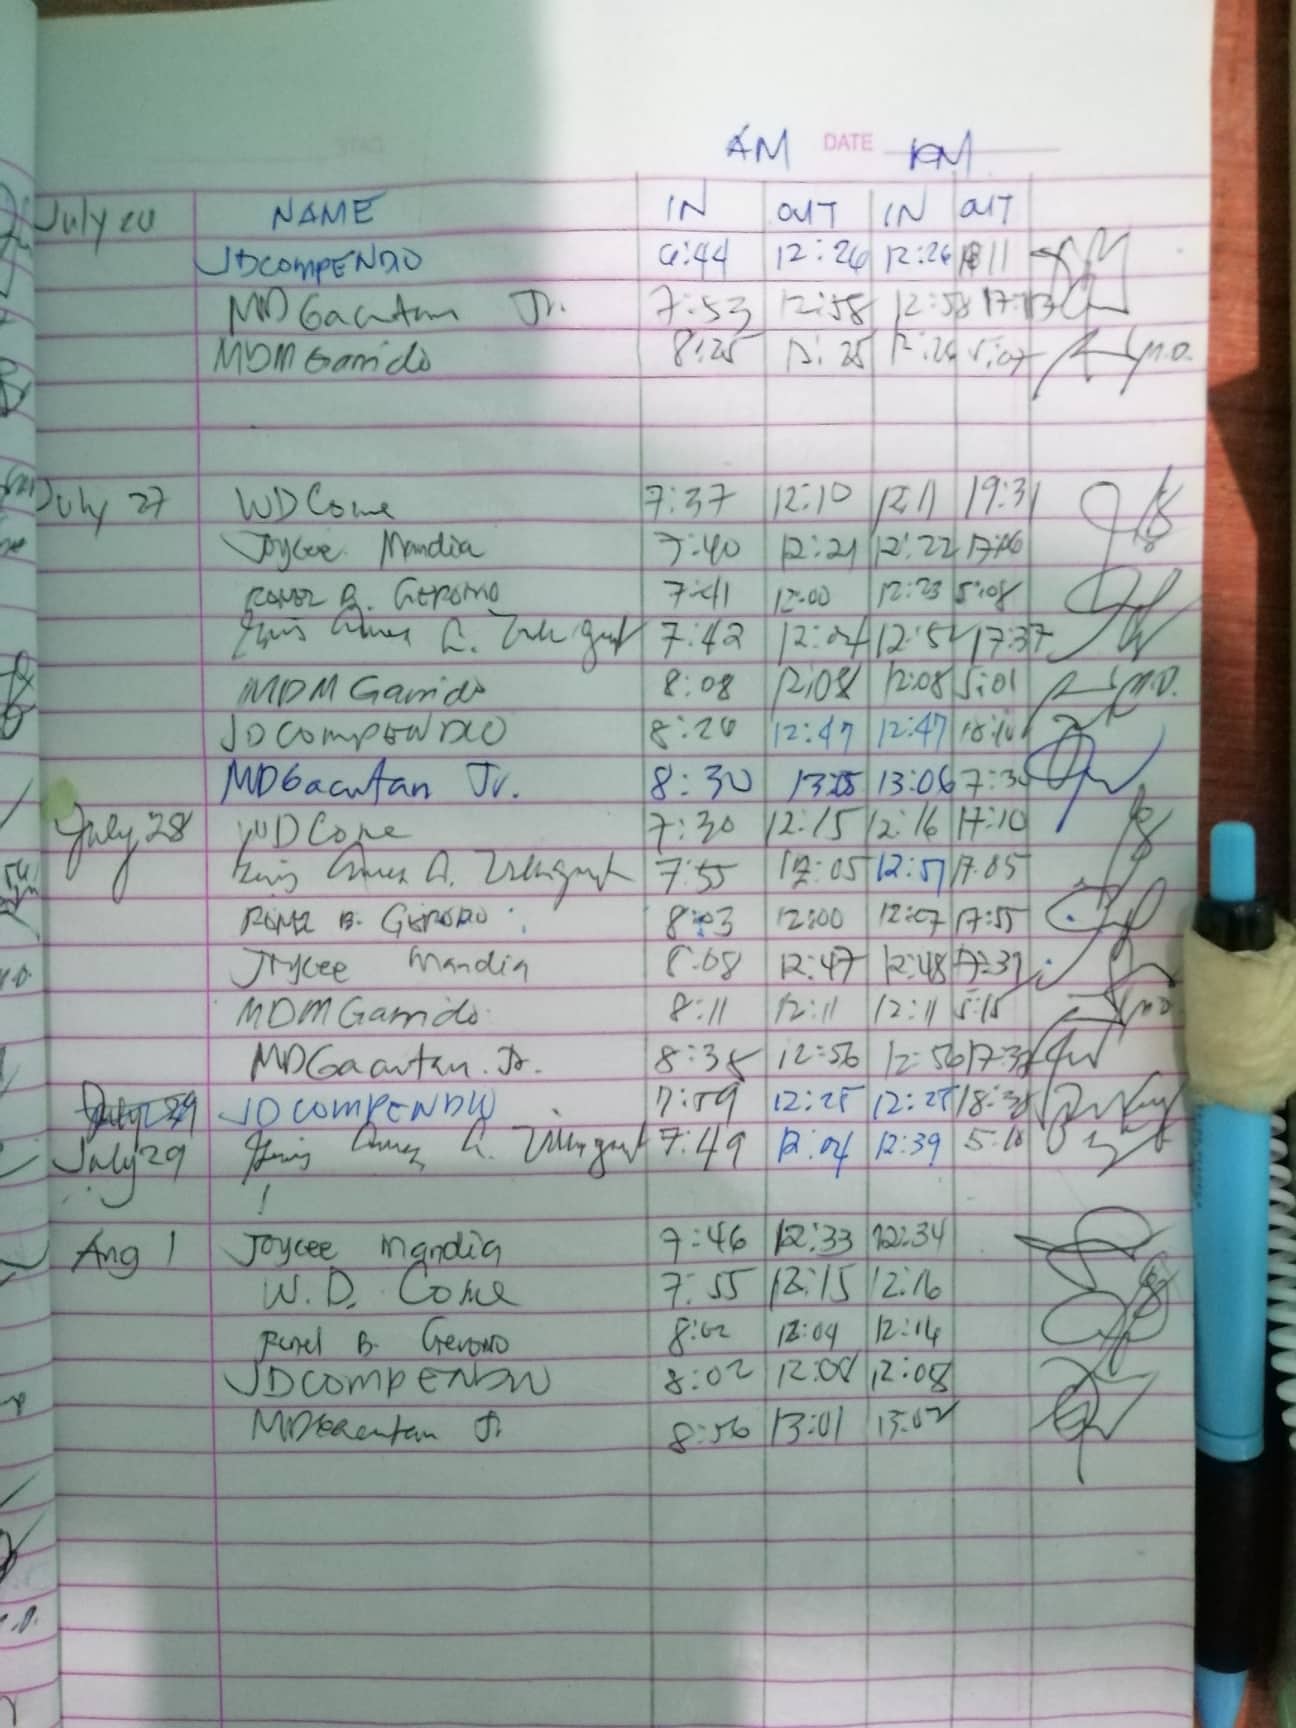 AM DATE PM
July 20 NAME IN OUT IN OUT
JDCOMPENDIO 6:44 12:26 12:26 18:11
MDGacutan Jr. 7:53 12:58 12:58 17:13
MDMGarrido 8:25 12:25 12:26 5:07 M.D.
July 27 WDCome 7:37 12:10 12:11 19:31
Joycee Mandia 7:40 12:21 12:22
B. GERONO 7:41 12:00 12:23 5:08
7:42 12:04 12:52 17:37
MDMGarrido 8:08 12:08 12:08 5:01 M.D.
JDCOMPENDIO 8:26 12:47 12:47
MDGacutan Jr. 8:30 13:06
July 28 WDCome 7:30 12:15 12:16 17:10
7:55 12:05 12:51 17:05
B. GERONO 8:03 12:00 12:07 17:55
Joycee Mandia 8:08 12:47 12:48 17:39
MDMGarrido 8:11 12:11 12:11 5:15 M.D.
MDGacutan Jr. 8:35 12:56 12:56
JDCOMPENDIO 7:59
July 29 7:49 12:04 12:39 5:10
Aug 1 Joycee Mandia 7:46 12:33 12:34
W.D. Come 7:55 12:15 12:16
B. Gerono 8:02 12:09 12:14
JDCOMPENDIO 8:02 12:08 12:08
MDGacutan Jr 8:56 13:01 13:02